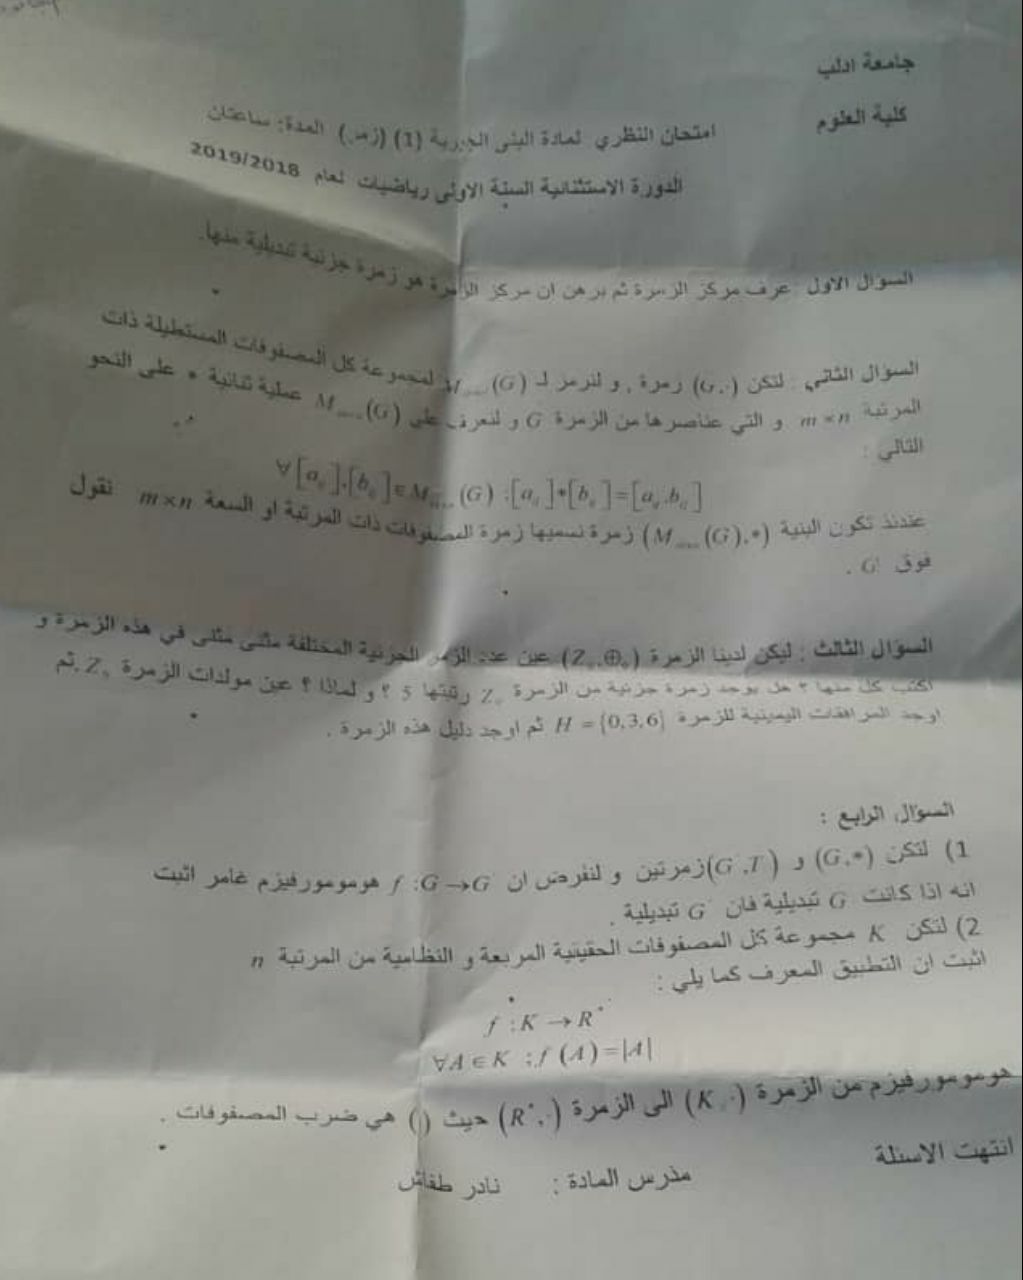 جامعة ادلب
كلية العلوم
امتحان النظري لمادة البنى الجبرية (1) (زمر) المدة: ساعتان
الدورة الاستثنائية السنة الاولى رياضيات لعام 2019/2018
السؤال الاول عرف مركز الزمرة ثم برهن ان مركز الزمرة هو زمرة جزئية تبديلية منها.
السؤال الثاني : لتكن (G,.) زمرة , و لنرمز لـ M (G) لمجموعة كل المصفوفات المستطيلة ذات
المرتبة m×n و التي عناصرها من الزمرة G و لنعرف على M (G) عملية ثنائية * على النحو
التالي :
∀[a_ij],[b_ij]∈M (G) :[a_ij]*[b_ij]=[a_ij.b_ij]
عندئذ تكون البنية (M (G),*) زمرة نسميها زمرة المصفوفات ذات المرتبة او السعة m×n نقول
فوق G .
السؤال الثالث : ليكن لدينا الزمرة (Z ,⊕) عين عدد الزمر الجزئية المختلفة مثنى مثنى في هذه الزمرة و
اكتب كل منها ؟ هل يوجد زمرة جزئية من الزمرة Z رتبتها 5 ؟ و لماذا ؟ عين مولدات الزمرة Z ,ثم
اوجد المرافقات اليمينية للزمرة H = {0,3,6} ثم اوجد دليل هذه الزمرة .
السؤال الرابع :
1) لتكن (G,*) و (G ,T) زمرتين و لنفرض ان f :G→G هومومورفيزم غامر اثبت
انه اذا كانت G تبديلية فان G تبديلية .
2) لتكن K مجموعة كل المصفوفات الحقيقية المربعة و النظامية من المرتبة n
اثبت ان التطبيق المعرف كما يلي :
f :K → R*
∀A∈K ; f (A)=|A|
هومومورفيزم من الزمرة (K,.) الى الزمرة (R*,.) حيث (.) هي ضرب المصفوفات .
انتهت الاسئلة
مدرس المادة : نادر طفاش